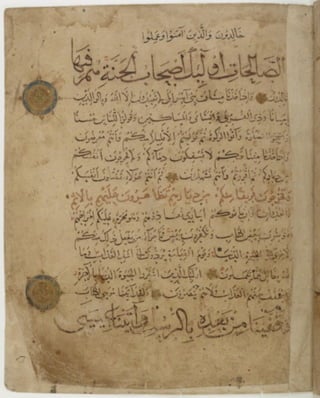 خالدون والذين آمنوا وعملوا
الصالحات أوليك أصحاب الجنة هم فيها
خالدون وإذ أخذنا ميثاق بني إسرائيل لا تعبدون إلا الله وبالوالدين
إحسانا وذي القربى واليتامى والمساكين وقولوا للناس حسنا
وأقيموا الصلوة وآتوا الزكوة ثم توليتم إلا قليلا منكم وأنتم معرضون
وإذ أخذنا ميثاقكم لا تسفكون دماءكم ولا تخرجون أنفسكم
من دياركم ثم أقررتم وأنتم تشهدون ثم أنتم هؤلاء تقتلون أنفسكم
وتخرجون فريقا منكم من ديارهم تظاهرون عليهم بالإثم
والعدوان وإن يأتوكم أسارى تفادوهم وهو محرم عليكم إخراجهم
أفتؤمنون ببعض الكتاب وتكفرون ببعض فما جزاء من يفعل ذلك منكم
إلا خزي في الحيوة الدنيا ويوم القيامة يردون إلى أشد العذاب وما الله
بغافل عما تعملون أوليك الذين اشتروا الحيوة الدنيا بالآخرة
فلا يخفف عنهم العذاب ولا هم ينصرون ولقد آتينا موسى الكتاب
وقفينا من بعده بالرسل وآتينا عيسى